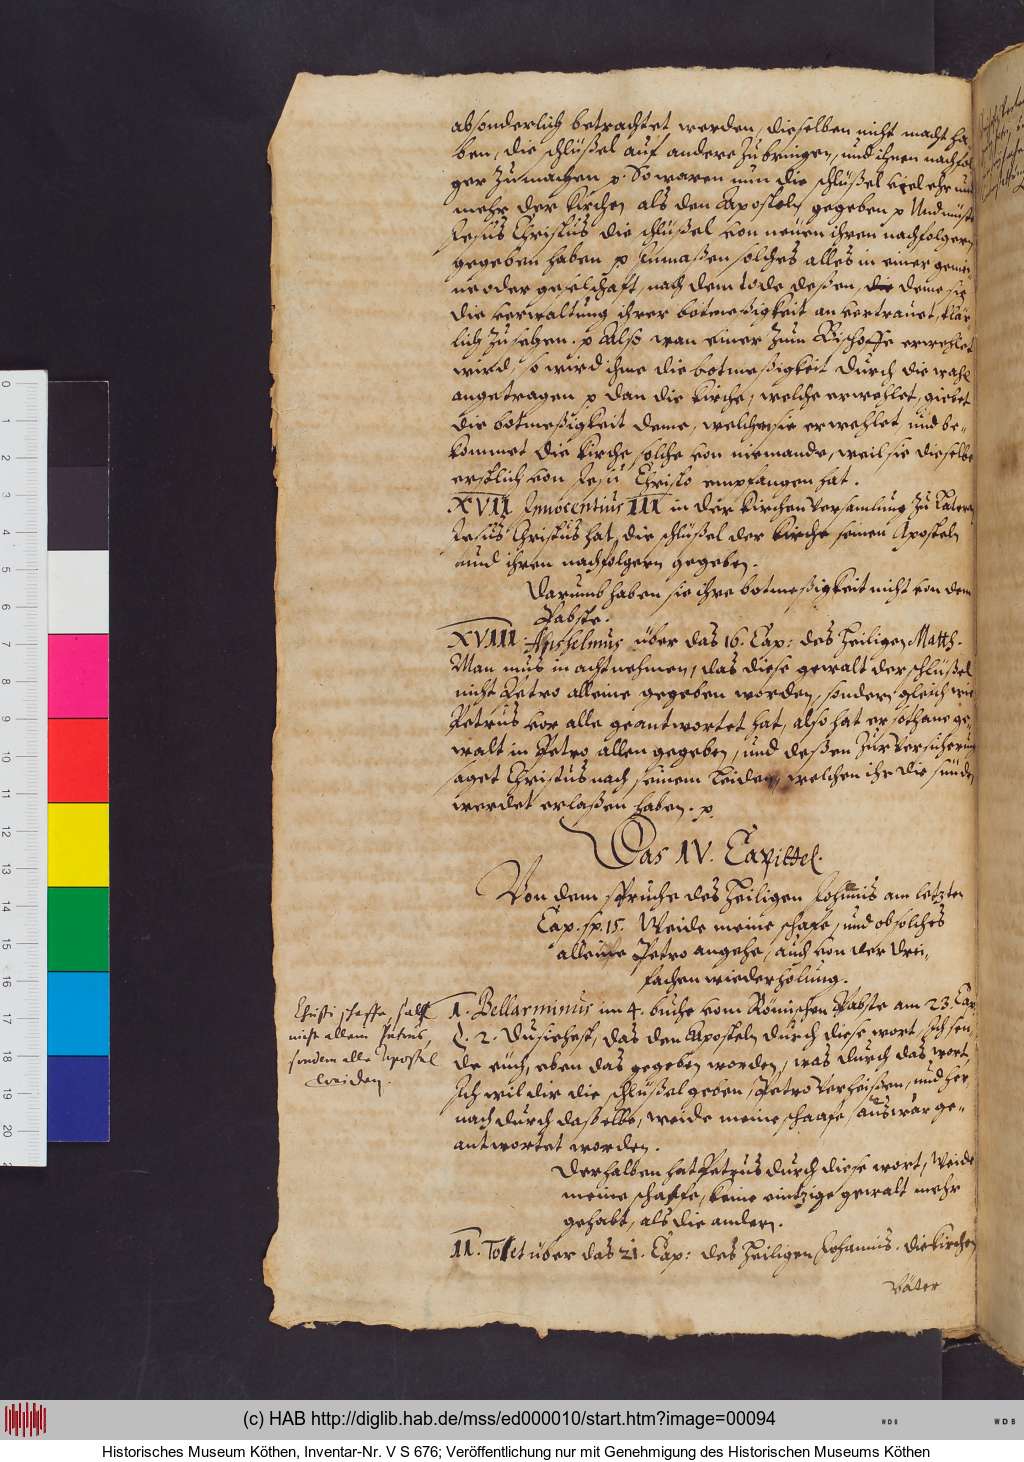 absonderlich betrachtet werden, dieselben nicht macht ha-
ben, die schlüßel auf andere zubringen, und ihnen nachfol
ger zumachen p. So waren nun die schlüßel viel ehr und
mehr der Kirchen als den Aposteln gegeben p Und müste
Jesus Christus die schlüßel von neuen ihren nachfolgern
gegeben haben p Inmaßen solches alles in einer gemei-
ne oder geselschaft, nach dem tode deßen, deme sie
die verwaltung ihrer botmeßigkeit an vertrauet, klär-
lich zu sehen. p Also wan einer zum Bischoffe erwehlet
wird, so wird ihme die botmeßigkeit durch die wahl
angetragen p dan die Kirche, welche erwehlet, giebet
die botmeßigkeit deme, welchen sie erwehlet, und be-
kommet die Kirche solche von niemande, weil sie dieselbe
erstlich von Jesu Christo empfangen hat.
XVII Innocentius III in der Kirchen Versamlung zu Latern
Jesus Christus hat, die schlüßel der Kirche seinen Aposteln
und ihren nachfolgern gegeben.
Darumb haben sie ihre botmeßigkeit nicht von dem
Pabste.
XVIII Anshelmus über das 16. Cap: des Heiligen Matth.
Man mus in acht nehmen, das diese gewalt der schlüßel
nicht Petro alleine gegeben worden, sondern gleich wie
Petrus vor alle geantwortet hat, also hat er sothane ge-
walt in Petro allen gegeben, und deßen zur Versicherung
saget Christus nach seinem Leiden, welchen ihr die sünde
werdet erlaßen haben. p
Das IV. Capittel.
Von dem spruche des Heiligen Johannis am letzten
Cap. sp. 15. Weide meine schafe, und ob solches
alleine Petro angehe, auch von der drei-
fachen wiederholung.
Christi schaffe, sall
nicht allein Petrus,
sondern alle Apostel
weiden.
1. Bellarminus im 4. buche vom Römischen Pabste am 23. Cap.
§. 2. Du siehest, das den Aposteln durch diese wort, Ich sen-
de euch, eben das gegeben worden, was durch das wort,
Ich wil dir die schlüßel geben, Petro verheißen, und her-
nach durch dasselbe, weide meine schaafe, auswär ge-
antwortet worden.
Derhalben hat Petrus durch diese wort, Weide
meine schaffe, keine eintzige gewalt mehr
gehabt, als die andern.
II. Tolet über das 21. Cap: des Heiligen Johannis. die Kirchen
Väter
0
1
2
3
4
5
6
7
8
9
10
11
12
13
14
15
16
17
18
19
20
(c) HAB http://diglib.hab.de/mss/ed000010/start.htm?image=00094
WDB
WDB
Historisches Museum Köthen, Inventar-Nr. V S 676; Veröffentlichung nur mit Genehmigung des Historischen Museums Köthen